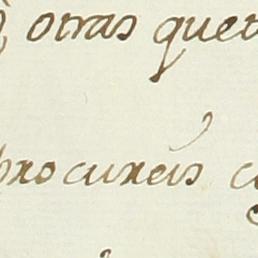 otras que
procureis